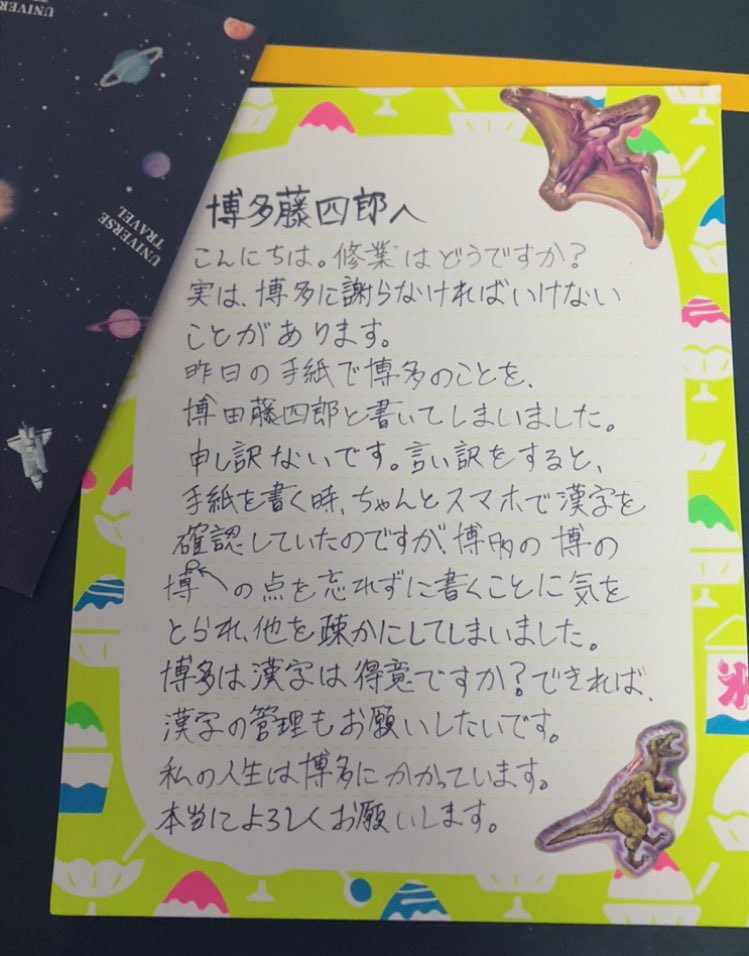 UNIVERSE
UNIVERSE
TRAVEL
博多藤四郎へ
こんにちは。修業はどうですか?
実は、博多に謝らなければいけない
ことがあります。
昨日の手紙で博多のことを、
博田藤四郎と書いてしまいました。
申し訳ないです。言い訳をすると、
手紙を書く時、ちゃんとスマホで漢字を
確認していたのですが、博多の博の
博の点を忘れずに書くことに気を
とられ、他を疎かにしてしまいました。
博多は漢字は得意ですか?できれば、
漢字の管理もお願いしたいです。
私の人生は博多にかかっています。
本当によろしくお願いします。
氷